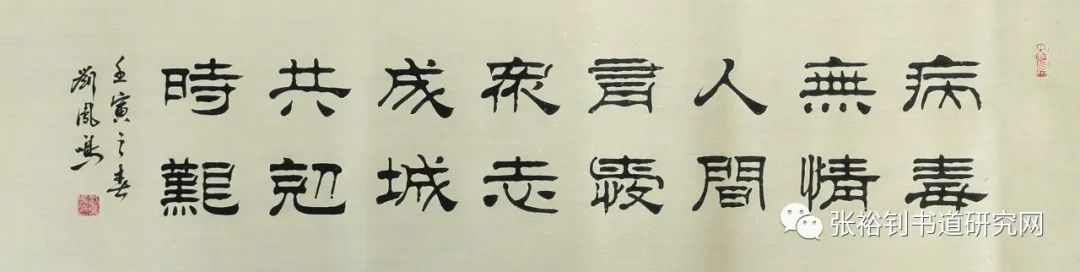 病毒
無情
人間
有愛
衆志
成城
共剋
時艱
壬寅之春
劉鳳
张裕钊书道研究网